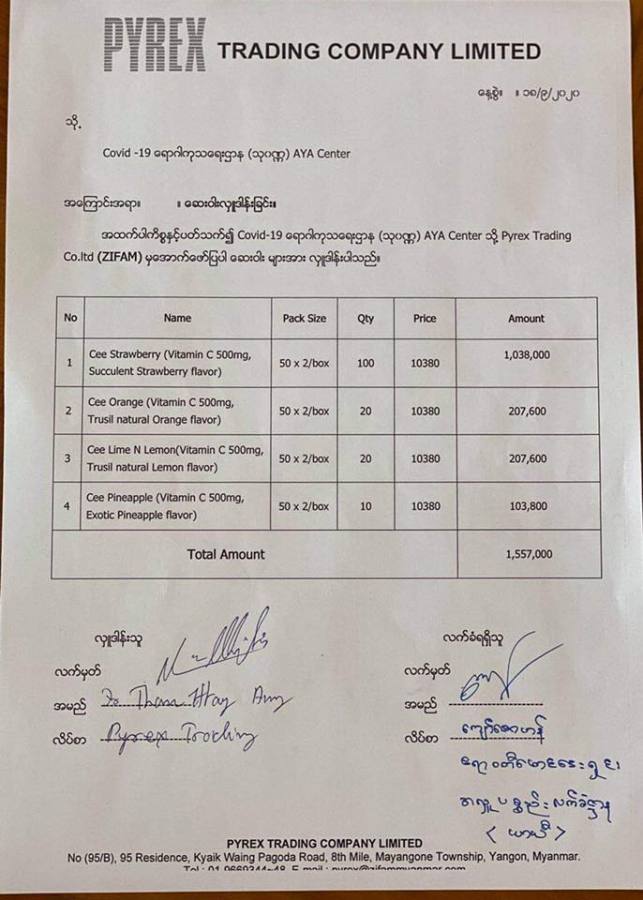 PYREX TRADING COMPANY LIMITED
နေ့စွဲ။ ။ ၁၈/၉/၂၀၂၀
သို့
Covid -19 ရောဂါကုသရေးဌာန (သုပဏ္ဏ) AYA Center
အကြောင်းအရာ။ ။ ဆေးဝါးလှူဒါန်းခြင်း။
အထက်ပါကိစ္စနှင့်ပတ်သက်၍ Covid-19 ရောဂါကုသရေးဌာန (သုပဏ္ဏ) AYA Center သို့ Pyrex Trading
Co.ltd (ZIFAM) မှအောက်ဖော်ပြပါ ဆေးဝါး များအား လှူဒါန်းပါသည်။
No Name Pack Size Qty Price Amount
1 Cee Strawberry (Vitamin C 500mg, Succulent Strawberry flavor) 50 x 2/box 100 10380 1,038,000
2 Cee Orange (Vitamin C 500mg, Trusil natural Orange flavor) 50 x 2/box 20 10380 207,600
3 Cee Lime N Lemon(Vitamin C 500mg, Trusil natural Lemon flavor) 50 x 2/box 20 10380 207,600
4 Cee Pineapple (Vitamin C 500mg, Exotic Pineapple flavor) 50 x 2/box 10 10380 103,800
Total Amount 1,557,000
လှူဒါန်းသူ လက်ခံရရှိသူ
လက်မှတ် လက်မှတ်
အမည် Thana Htay အမည်
လိပ်စာ Pyrex Trading လိပ်စာ ကျော်ဇောဟန်
PYREX TRADING COMPANY LIMITED
No (95/B), 95 Residence, Kyaik Waing Pagoda Road, 8th Mile, Mayangone Township, Yangon, Myanmar.